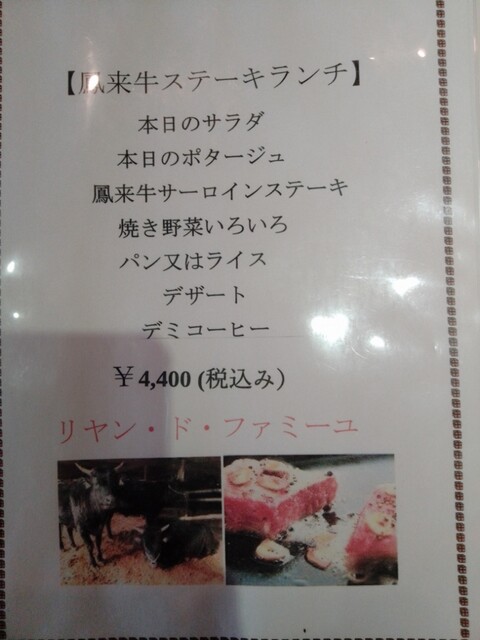 【鳳来牛ステーキランチ】
本日のサラダ
本日のポタージュ
鳳来牛サーロインステーキ
焼き野菜いろいろ
パン又はライス
デザート
デミコーヒー
￥4,400 (税込み）
リヤン・ド・ファミーユ